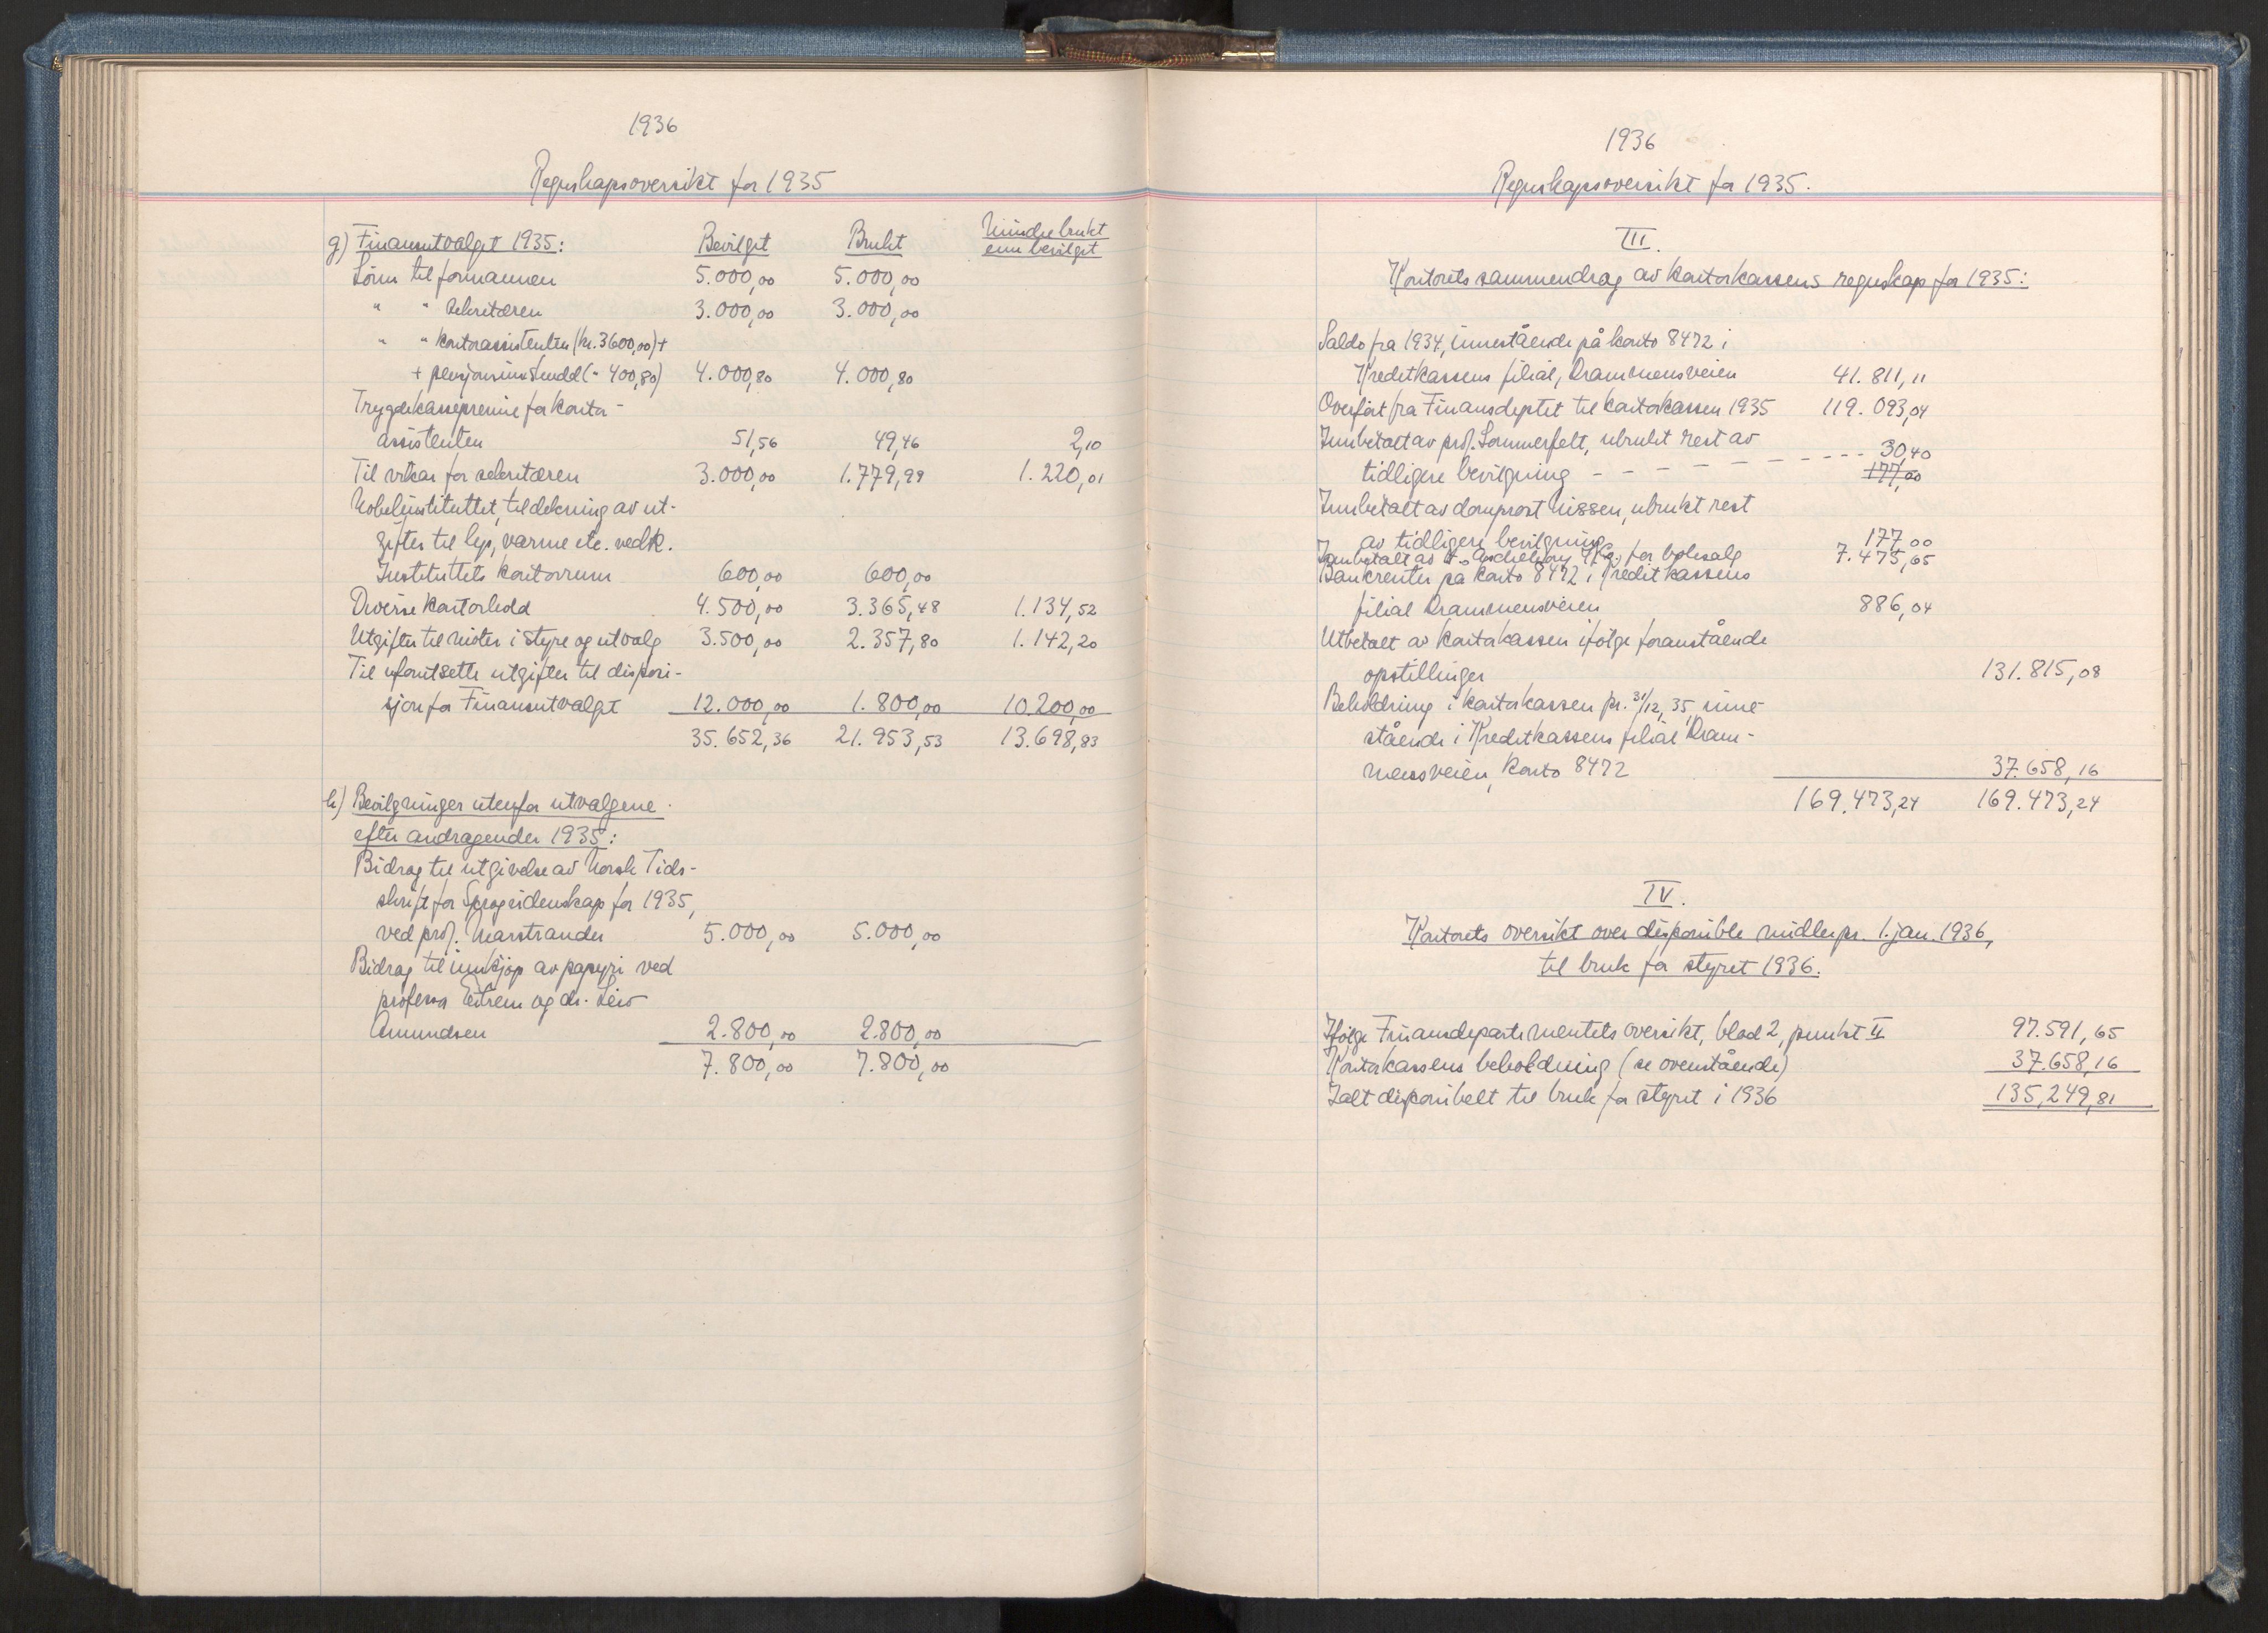 1936
Regnskapsoversikt for 1935
g) Finansutvalget 1935: Bevilget Brukt Mindre brukt enn bevilget
Lønn til formannen 5.000,00 5.000,00
" " sekretæren 3.000,00 3.000,00
" " kontorassistenten (kr. 3600,00) +
+ pensjonsinnskudd (" 400,80) 4.000,80 4.000,80
Trygdekassepremie for kontor-
assistenten 51,56 49,46 2,10
Til vikar for sekretæren 3.000,00 1.779,99 1.220,01
Nobelinstituttet, til dekning av ut-
gifter til lys, varme etc. vedk.
Instituttets kontorrum 600,00 600,00
Diverse kontorhold 4.500,00 3.365,48 1.134,52
Utgifter til møter i styre og utvalg 3.500,00 2.357,80 1.142,20
Til uforutsette utgifter til disposi-
sjon for Finansutvalget 12.000,00 1.800,00 10.200,00
35.652,36 21.953,53 13.698,83
h) Bevilgninger utenfor utvalgene
efter andragender 1935:
Bidrag til utgivelse av Norsk Tids-
skrift for Sprogvidenskap for 1935,
ved prof. Marstrander 5.000,00 5.000,00
Bidrag til innkjøp av papyri ved
professor Eitrem og dr. Leiv
Amundsen 2.800,00 2.800,00
7.800,00 7.800,00
1936
Regnskapsoversikt for 1935.
III.
Kontorets sammendrag av kontorkassens regnskap for 1935:
Saldo fra 1934, innestående på konto 8472 i
Kreditkassens filial, Drammensveien 41.811,11
Overført fra Finansdeptet til kontorkassen 1935 119.093,04
Innbetalt av prof. Sommerfelt, ubrukt rest av
tidligere bevilgning - - - - - - - - - - 30,40
177,00
Innbetalt av domprost Nissen, ubrukt rest
av tidligere bevilgning 177,00
Innbetalt av H. Aschehoug & Co. for boksalg 7.475,65
Bankrenter på konto 8472 i Kreditkassens
filial Drammensveien 886,04
Utbetalt av kontorkassen ifølge foranstående
opstillinger 131.815,08
Beholdning i kontorkassen pr. 31/12, 35, inne-
stående i Kreditkassens filial Dram-
mensveien, konto 8472 37.658,16
169.473,24 169.473,24
IV.
Kontorets oversikt over disponible midler pr. 1. jan. 1936,
til bruk for styret 1936.
Ifølge Finansdepartementets oversikt, blad 2, punkt II 97.591,65
Kontorkassens beholdning (se ovenstående) 37.658,16
Ialt disponibelt til bruk for styret i 1936 135,249,81